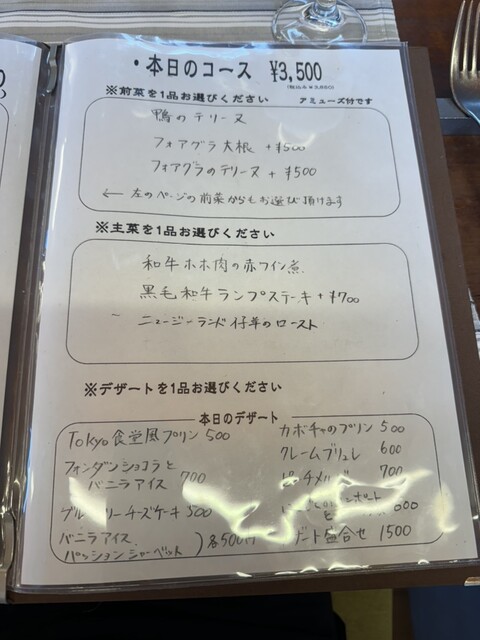 ・本日のコース ¥3,500
(税込み¥3,850)
※前菜を1品お選びください アミューズ付です
鴨のテリーヌ
フォアグラ大根 +¥500
フォアグラのテリーヌ +¥500
← 左のページの前菜からもお選び頂けます
※主菜を1品お選びください
和牛ホホ肉の赤ワイン煮
黒毛和牛ランプステーキ+¥700
ニュージーランド仔羊のロースト
※デザートを1品お選びください
本日のデザート
Tokyo食堂風プリン 500
フォンダンショコラと
バニラアイス 700
チーズケーキ 500
バニラアイス
パッションシャーベット ) 各500円
カボチャのプリン 500
クレームブリュレ 600
700
盛合せ 1500